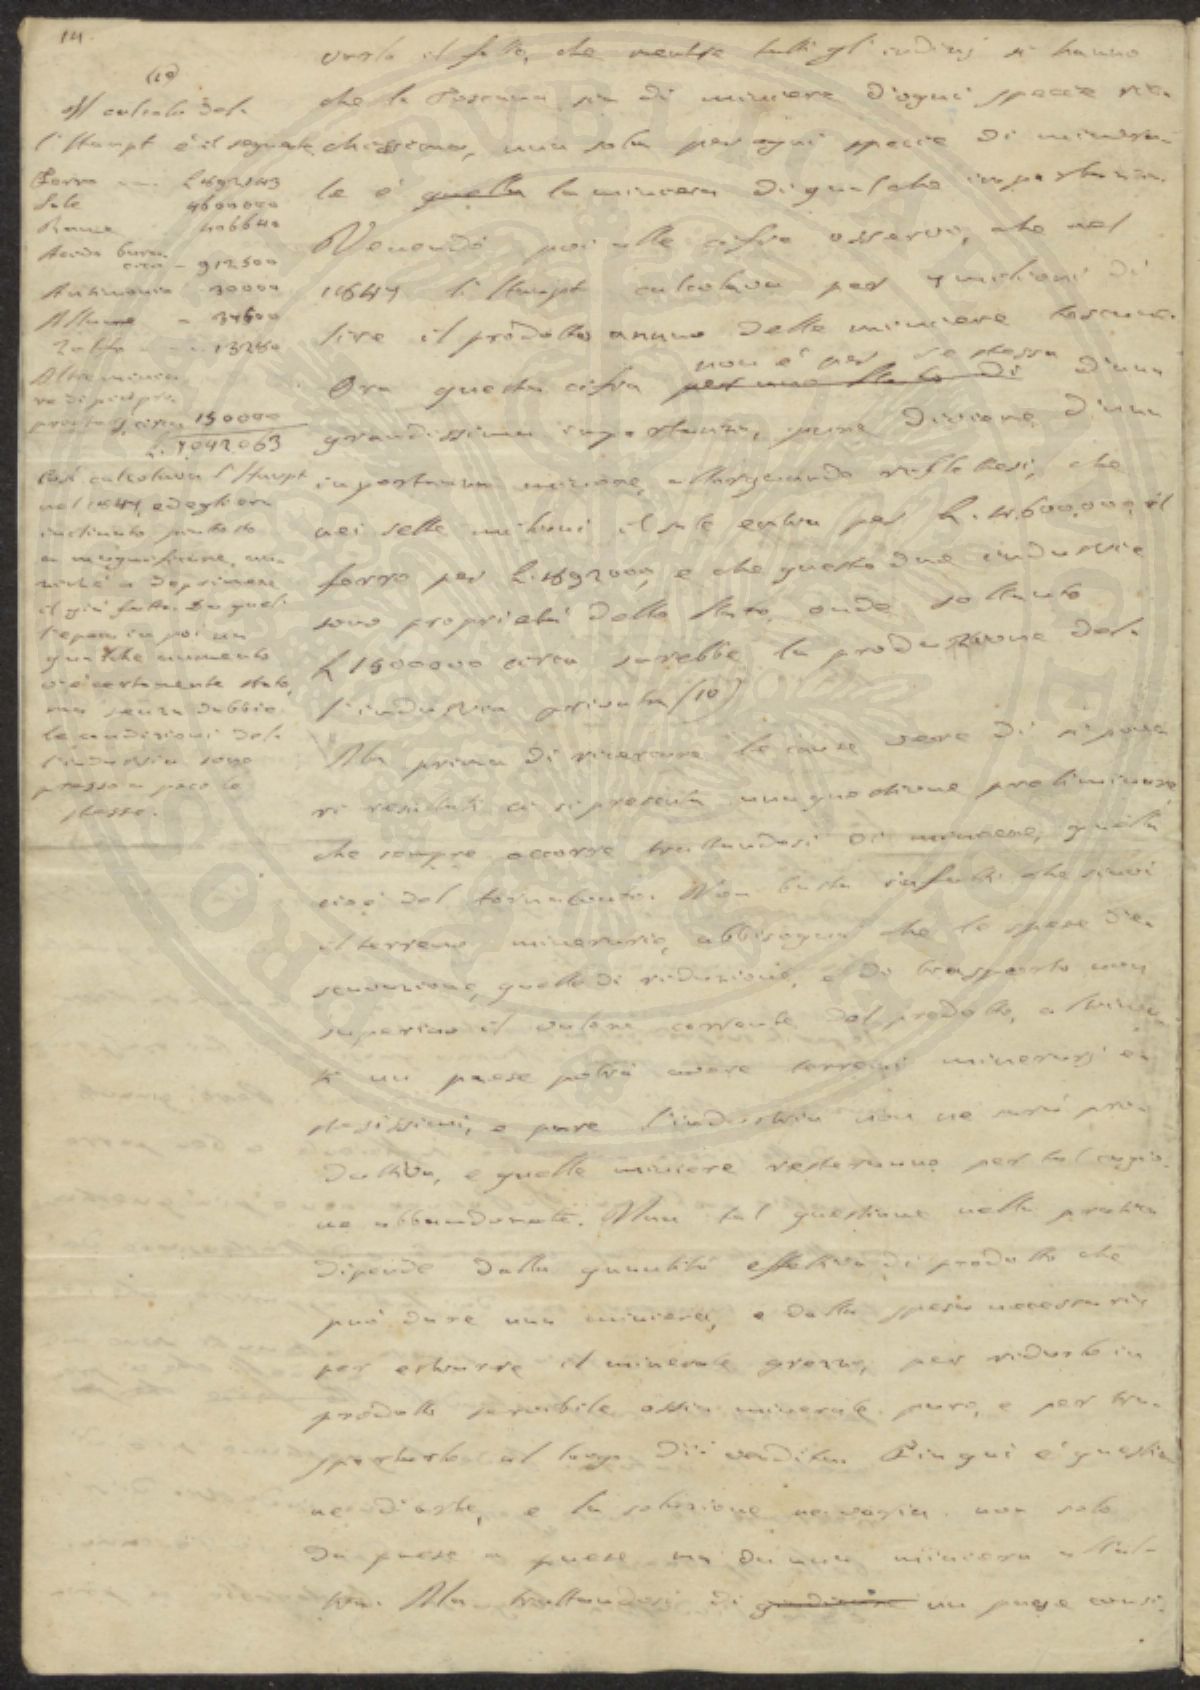 14.
(10)
Il calcolo del-
l'Haupt è il seguente
Ferro L. 1892143
Sale 4600000
Rame 406640
Acido bora-
cico — 912500
Antimonio 30000
Allume — 34500
Zolfo 13280
Altre minie-
re di più pro-
prietarj, circa 150000
L. 7.042.063
Così calcolava l'Haupt
nel 1847, ed egli era
inclinato piuttosto
a magnificare, an-
zichè a deprimere
il già fatto. Da quel-
l'epoca in poi un
qualche aumento
vi è certamente stato,
ma senza dubbio
le condizioni del-
l'industria sono
presso a poco le
stesse.
il fatto, che mentre tutti gl'indizj si hanno
che la Toscana sia di miniere d'ogni specie ric-
chissima, una sola per ogni specie di minera-
le è quella la miniera di qualche importanza.
Venendo poi alle cifre osservo, che nel
1847 l'Haupt calcolava per 7 milioni di
lire il prodotto annuo delle miniere toscane.
non è per se stessa
Ora questa cifra per uno Stato di d'una
grandissima importanza, pure diviene d'una
importanza minore, allorquando riflettesi, che
nei sette milioni il sale entra per L. 4.600.000, il
ferro per L. 1892000, e che queste due industrie
sono proprietà dello Stato, onde soltanto
L 1500000 circa sarebbe la produzione del-
l'industria privata (10)
Ma prima di ricercare le cause vere di sì pove-
ri resultati ci si presenta una questione preliminare,
che sempre occorre trattandosi di miniere, quella
cioè del tornaconto. Non basta infatti che siavi
il terreno minerario, abbisogna che le spese d'e-
scavazione, quelle di riduzione, e di trasporto non
superino il valore corrente del prodotto, altrimen-
ti un paese potrà avere terreni minerarj e-
stesissimi, e pure l'industria non ne sarà pro-
duttiva, e quelle miniere resteranno per tal cagio-
ne abbandonate. Una tal questione nella pratica
dipende dalla quantità effettiva di prodotto che
può dare una miniera, e dalla spesa necessaria
per estrarre il minerale grezzo, per ridurlo in
prodotto servibile ossia minerale puro, e per tra-
sportarlo al luogo di vendita. Fin qui è questio-
ne d'arte, e la soluzione ne varia non solo
da paese a paese ma da una miniera all'al-
tra. Ma trattandosi di giudicare un paese consi-